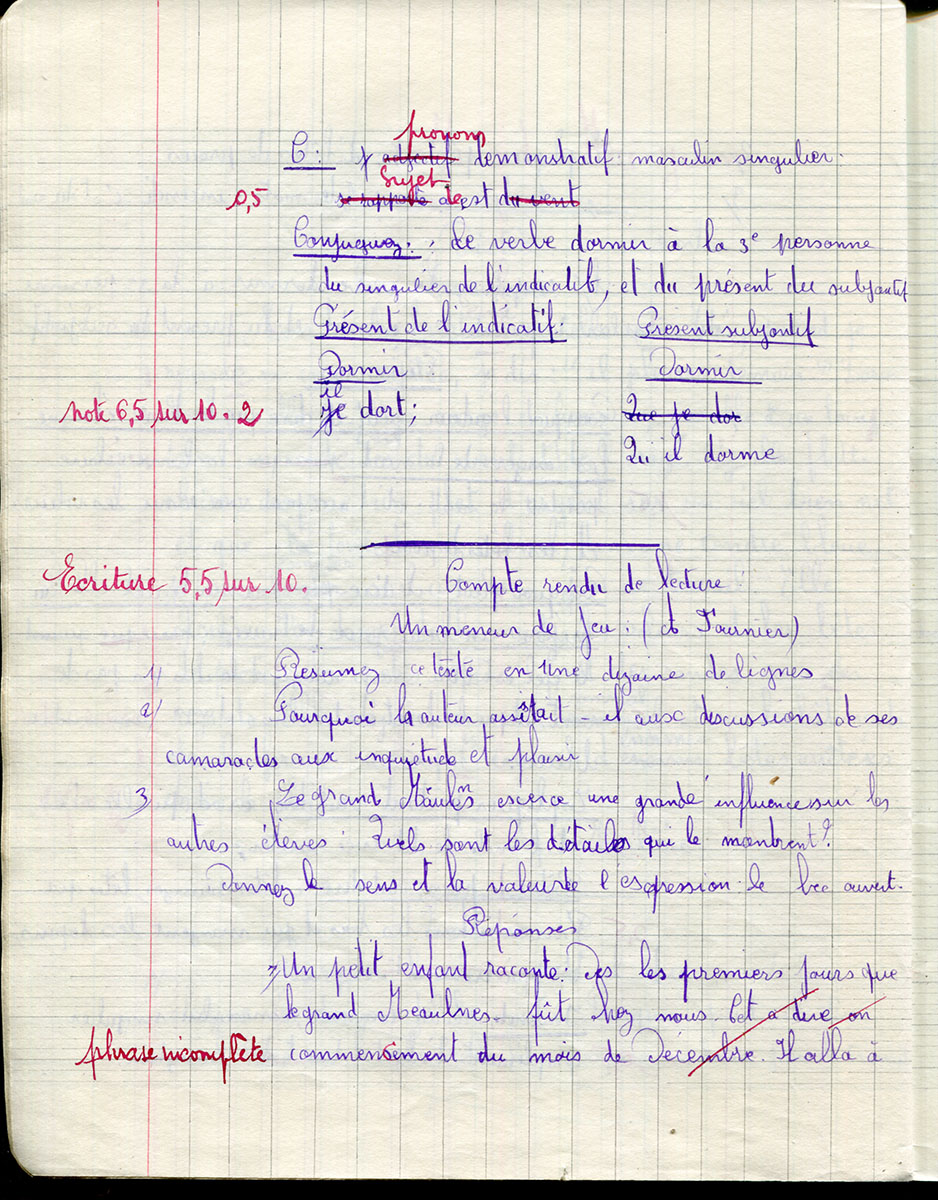 pronom
C : adjectif démonstratif masculin singulier.
Sujet
0,5 se rapporte de est du vent
Conjuguez : Le verbe dormir à la 3e personne
du singulier de l'indicatif, et du présent du subjontif
Présent de l'indicatif. Present subjontif
Dormir Dormir
il
note 6,5 sur 10. 2 je dort; Que je dor
Qu'il dorme
Ecriture 5,5 sur 10. Compte rendu de lecture
Un meneur de Jeu : ( Fournier)
1/ Résumez ce texte en une dizaine de lignes
2/ Pourquoi l'auteur assitait-il aux discussions de ses
camarades aux inquiétude et plaisir
3 Le grand exerce une grande influence sur les
autres élèves. Quels sont les détails qui le montrent?
Donnez le sens et la valeur de l'expression le bec ouvert.
Réponses
Un petit enfant raconte. Dès les premiers jours que
le grand Meaulnes fût chez nous. Cet a dire on
phrase incomplète commensement du mois de Décembre. Il alla à